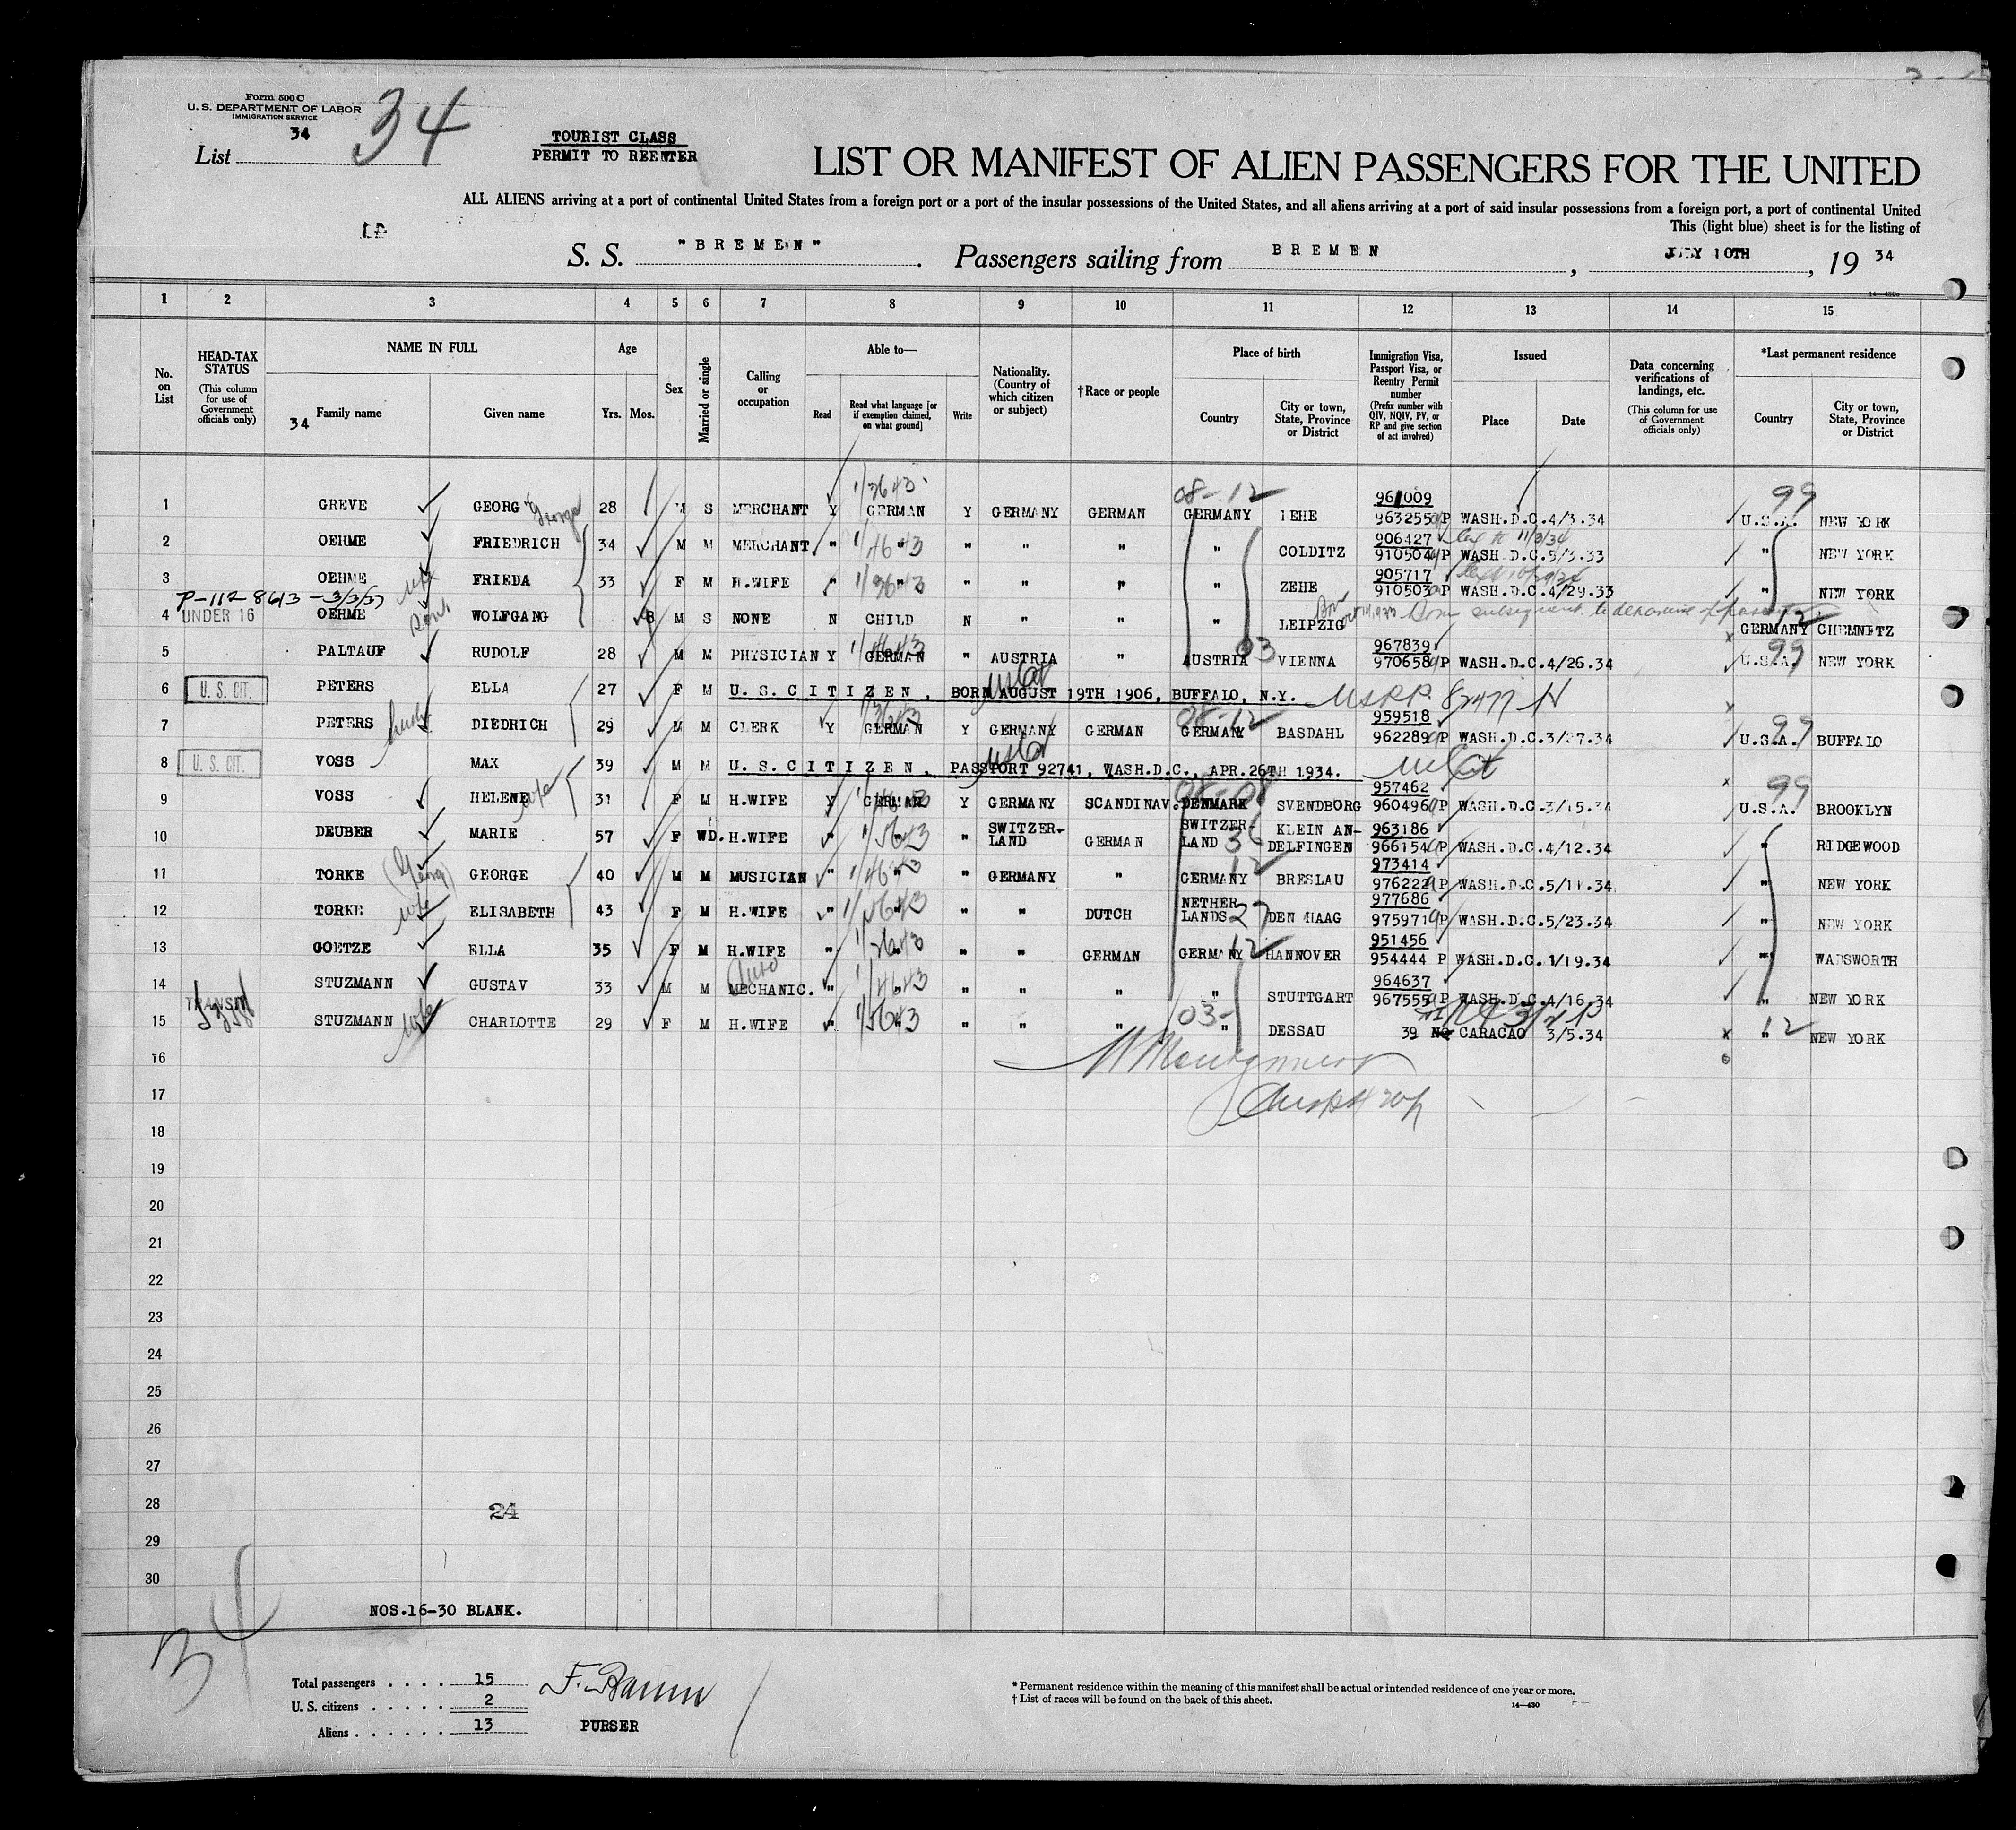 Form 500 C
U. S. DEPARTMENT OF LABOR
IMMIGRATION SERVICE
34
List
34
TOURIST CLASS
PERMIT TO REENTER
LIST OR MANIFEST OF ALIEN PASSENGERS FOR THE UNITED
ALL ALIENS arriving at a port of continental United States from a foreign port or a port of the insular possessions of the United States, and all aliens arriving at a port of said insular possessions from a foreign port, a port of continental United
This (light blue) sheet is for the listing of
S. S. "BREMEN". Passengers sailing from BREMEN, JULY 10TH, 19 34
1 2 3 4 5 6 7 8 9 10 11 12 13 14 15
No. on List
HEAD-TAX STATUS (This column for use of Government officials only)
NAME IN FULL
34 Family name Given name
Age Yrs. Mos.
Sex
Married or single
Calling or occupation
Able to—
Read Read what language [or if exemption claimed, on what ground] Write
Nationality. (Country of which citizen or subject)
† Race or people
Place of birth
Country City or town, State, Province or District
Immigration Visa, Passport Visa, or Reentry Permit number (Prefix number with QIV, NQIV, PV, or RP and give section of act involved)
Issued
Place Date
Data concerning verifications of landings, etc. (This column for use of Government officials only)
*Last permanent residence
Country City or town, State, Province or District
1 GREVE GEORG George 28 M S MERCHANT Y GERMAN Y GERMANY GERMAN GERMANY LEHE 961009 963255 P WASH.D.C. 4/3.34 U.S.A. NEW YORK
2 OEHME FRIEDRICH 34 M M MERCHANT " " " " " " COLDITZ 906427 910504 P WASH.D.C. 5/3.33 " NEW YORK
3 OEHME FRIEDA 33 F M H.WIFE " " " " " " ZEHE 905717 910503 P WASH.D.C. 4/29.33 " NEW YORK
P-112 8613 - 3/3/37
4 UNDER 16 OEHME WOLFGANG 8 M S NONE N CHILD N " " " LEIPZIG Born subsequent to departure of GERMANY CHEMNITZ
5 PALTAUF RUDOLF 28 M M PHYSICIAN Y GERMAN " AUSTRIA " AUSTRIA VIENNA 967839 970658 P WASH.D.C. 4/26.34 U.S.A. NEW YORK
6 U. S. CIT. PETERS ELLA 27 F M U.S.CITIZEN, BORN AUGUST 19TH 1906, BUFFALO, N.Y.
7 PETERS DIEDRICH 29 M M CLERK Y GERMAN Y GERMANY GERMAN GERMANY BASDAHL 959518 962289 P WASH.D.C. 3/27.34 U.S.A. BUFFALO
8 U. S. CIT. VOSS MAX 39 M M U.S.CITIZEN, PASSPORT 92741, WASH.D.C., APR.26TH 1934.
9 VOSS HELENE wife 31 F M H.WIFE Y GERMAN Y GERMANY SCANDINAV. DENMARK SVENDBORG 957462 960496 P WASH.D.C. 3/15.34 U.S.A. BROOKLYN
10 DEUBER MARIE 57 F WD. H.WIFE " " " SWITZER-LAND GERMAN SWITZER-LAND KLEIN AN-DELFINGEN 963186 966154 P WASH.D.C. 4/12.34 " RIDGEWOOD
11 TORKE GEORGE 40 M M MUSICIAN " " " GERMANY " GERMANY BRESLAU 973414 976222 P WASH.D.C. 5/11.34 " NEW YORK
12 TORKE wife ELISABETH 43 F M H.WIFE " " " " DUTCH NETHER LANDS DEN HAAG 977686 975971 P WASH.D.C. 5/23.34 " NEW YORK
13 GOETZE ELLA 35 F M H.WIFE " " " " GERMAN GERMANY HANNOVER 951456 954444 P WASH.D.C. 1/19.34 " WADSWORTH
14 STUZMANN GUSTAV 33 M M Auto MECHANIC. " " " " " " STUTTGART 964637 967555 P WASH.D.C. 4/16.34 " NEW YORK
15 TRANSIT STUZMANN wife CHARLOTTE 29 F M H.WIFE " " " " " " DESSAU 39 CARACAO 3/5.34 " NEW YORK
16
17
18
19
20
21
22
23
24
25
26
27
28 24
29
30
NOS.16-30 BLANK.
34
Total passengers . . . . 15
U. S. citizens . . . . . 2
Aliens . . . . . . 13
PURSER
* Permanent residence within the meaning of this manifest shall be actual or intended residence of one year or more.
† List of races will be found on the back of this sheet.
14—430